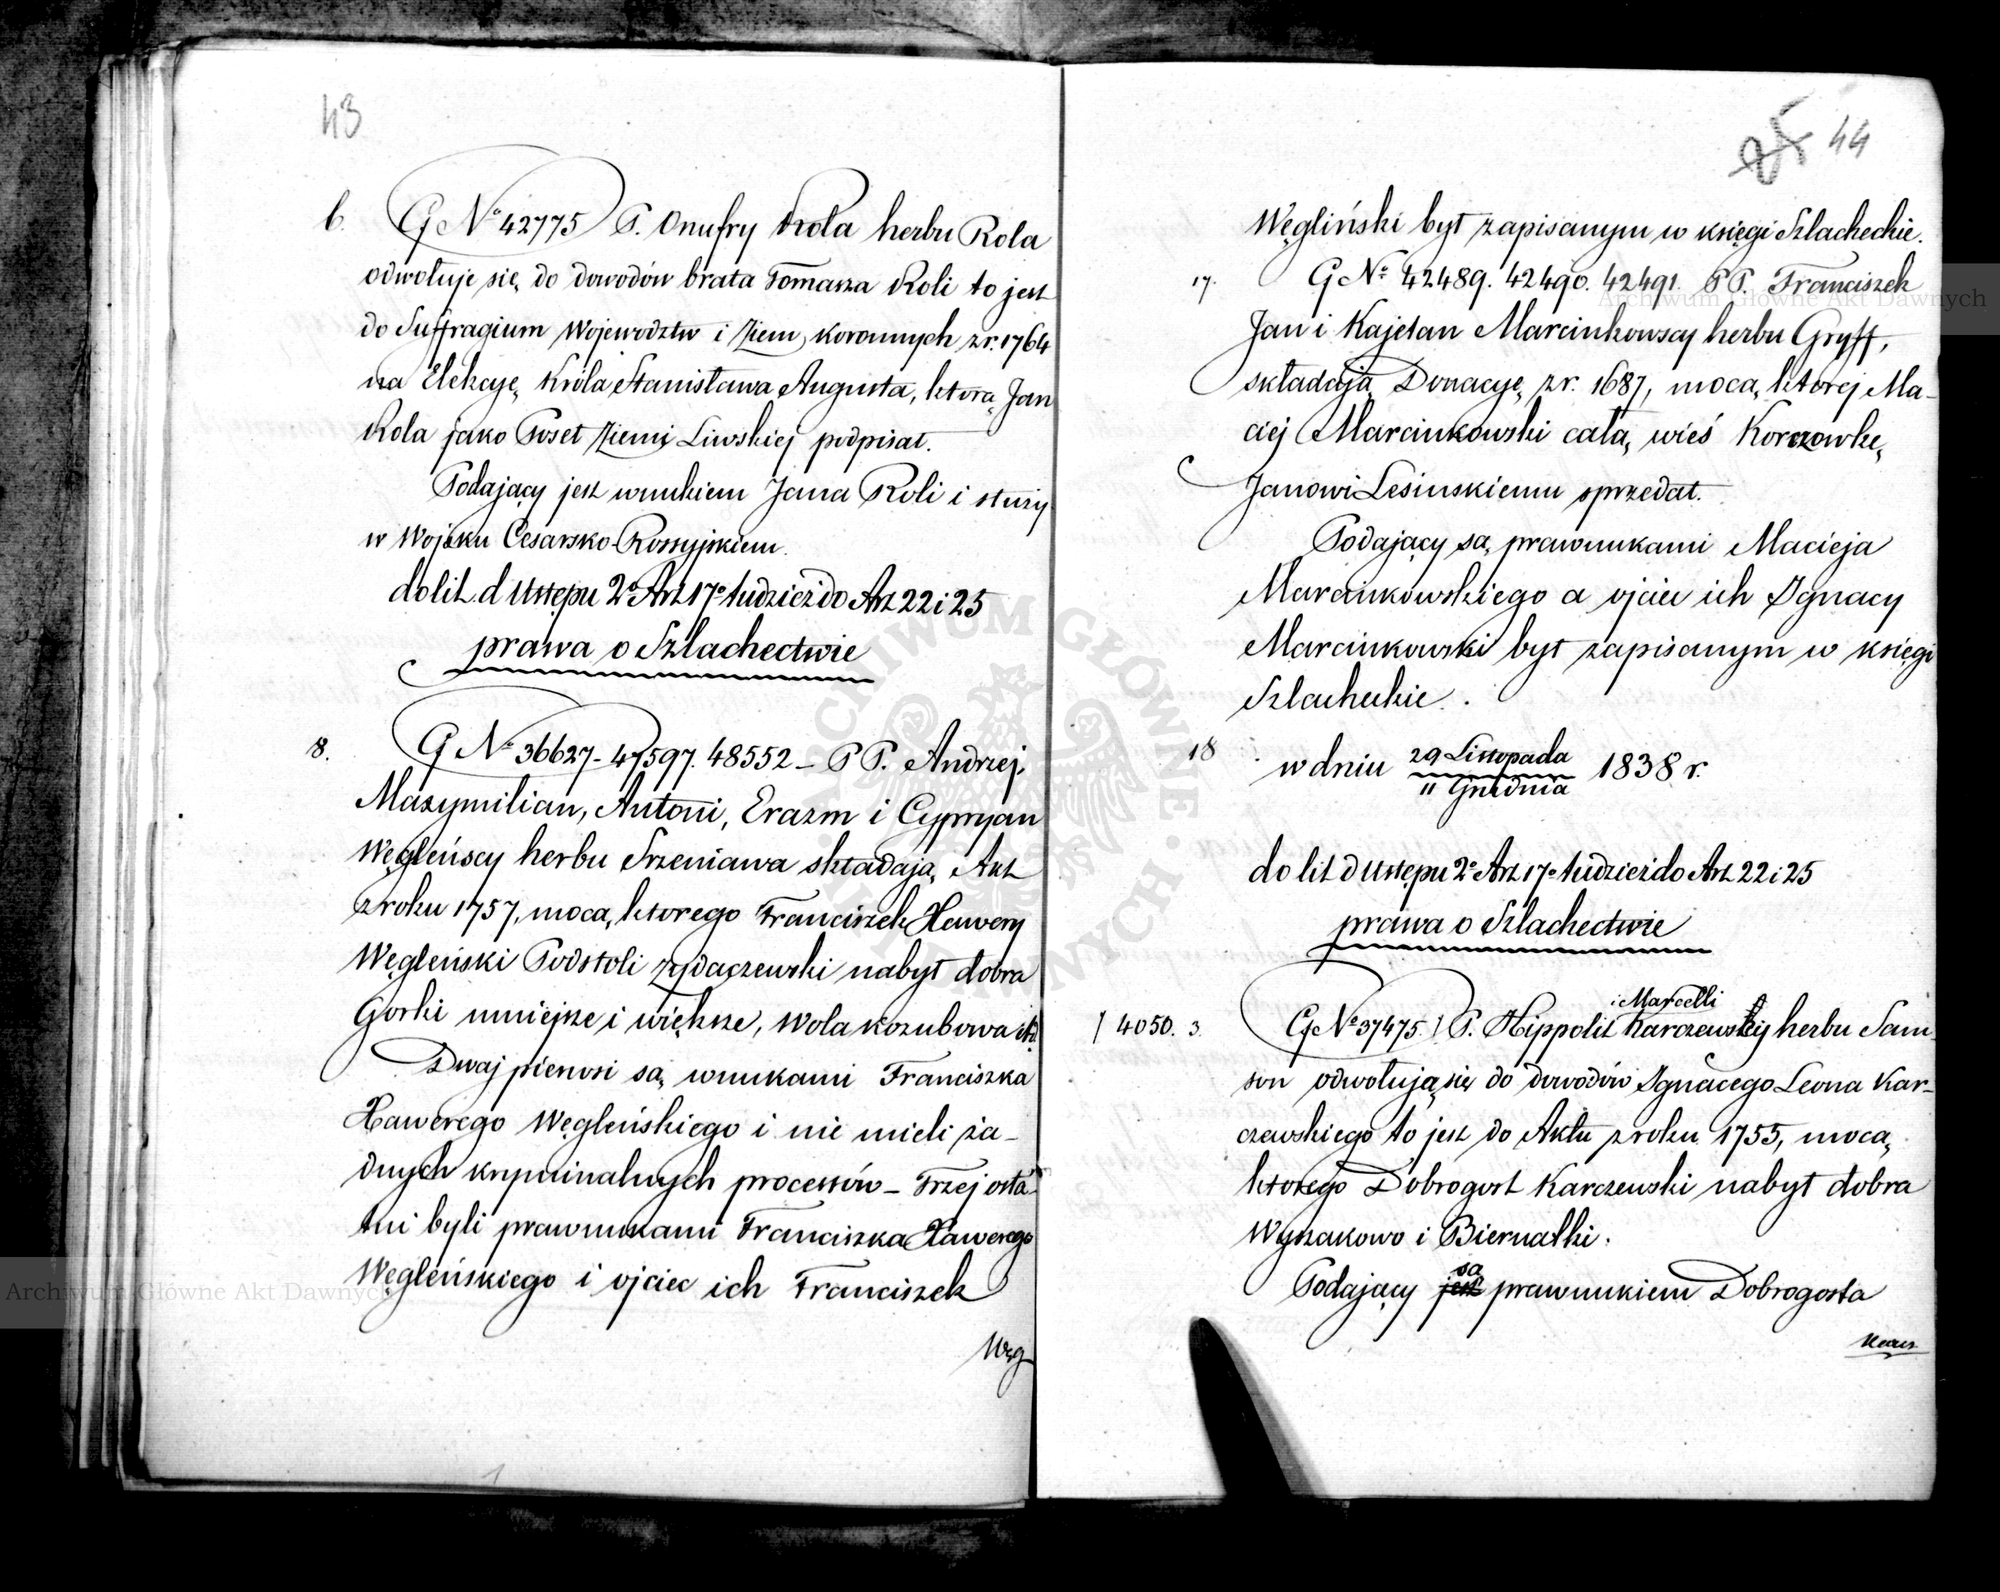 43
6. G N° 42775 P. Onufry Rola herbu Rola
odwołuje się do dowodów brata Tomasza Roli to jest
do Suffragium Województw i Ziem koronnych z r. 1764
na Elekcyę Króla Stanisława Augusta, którą Jan
Rola jako Poseł Ziemi Liwskiej podpisał.
Podający jest wnukiem Jana Roli i służy
w Wojsku Cesarsko-Rossyjskiem.
do lit. d Ustępu 2° Art 17° tudzież do Art 22 i 25
prawa o Szlachectwie
8. G N° 36627 - 47597. 48552 - P P. Andrzej,
Maxymilian, Antoni, Erazm i Cypryan
Węgleńscy herbu Srzeniawa składają Akt
z roku 1757, mocą którego Franciszek Xawery
Węgleński Podstoli Zydaczewski nabył dobra
Gorki mniejsze i większe, Wola Kozubowa itd.
Dwaj pierwsi są wnukami Franciszka
Xawerego Węgleńskiego i nie mieli ża-
dnych kryminalnych processów - Trzej osta-
tni byli prawnukami Franciszka Xawerego
Węgleńskiego i ojciec ich Franciszek
Węg
44
Węgliński był zapisanym w księgi Szlacheckie.
17. G N° 42489. 42490. 42491. P P. Franciszek
Jan i Kajetan Marcinkowscy herbu Gryff,
składają Donacyę z r. 1687, mocą której Ma-
ciej Marcinkowski całą wieś Korczowkę
Janowi Lesinskiemu sprzedał.
Podający są prawnukami Macieja
Marcinkowskiego a ojciec ich Ignacy
Marcinkowski był zapisanym w księgi
Szlacheckie.
18 w dniu 29 Listopada / 11 Grudnia 1838 r.
do lit d Ustępu 2° Art 17° tudzież do Art 22 i 25
prawa o Szlachectwie
i Marcelli
4050. 3. G N° 37475. P. Hippolit Karczewscy herbu Sam
son odwołują się do dowodów Ignacego Leona Kar-
czewskiego to jest do Aktu z roku 1755, mocą
którego Dobrogost Karczewski nabył dobra
Wyszakowo i Biernatki.
są
Podający jest prawnukiem Dobrogosta
Archiwum Główne Akt Dawnych
Archiwum Główne Akt Dawnych
ARCHIWUM GŁÓWNE AKT DAWNYCH